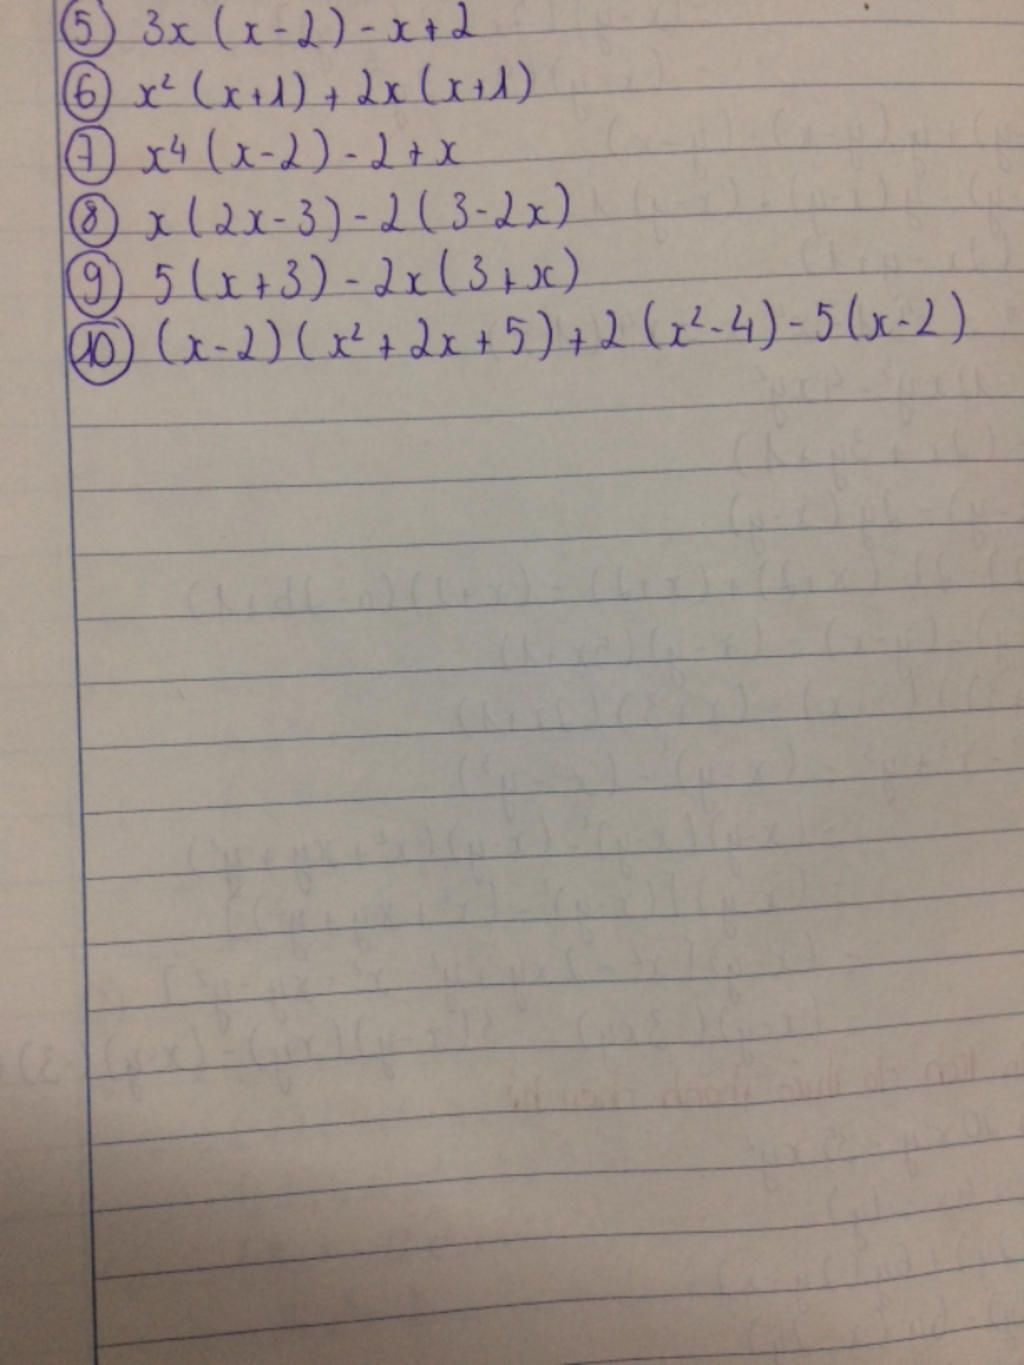 ⑤ 3x (x-2) - x+2
⑥ x² (x+1) + 2x (x+1)
⑦ x4 (x-2) - 2 + x
⑧ x (2x-3) - 2 (3-2x)
⑨ 5 (x+3) - 2x (3+x)
⑩ (x-2) (x² + 2x + 5) + 2 (x² - 4) - 5 (x-2)